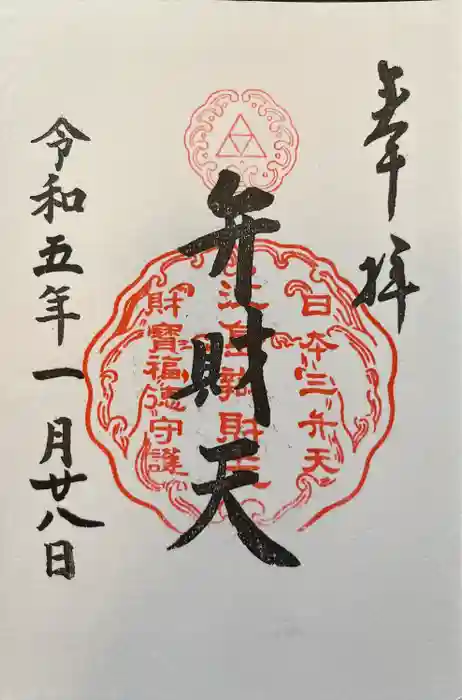 奉拝
日本三弁天
弁財天
財寶福徳守護
令和五年一月廿八日